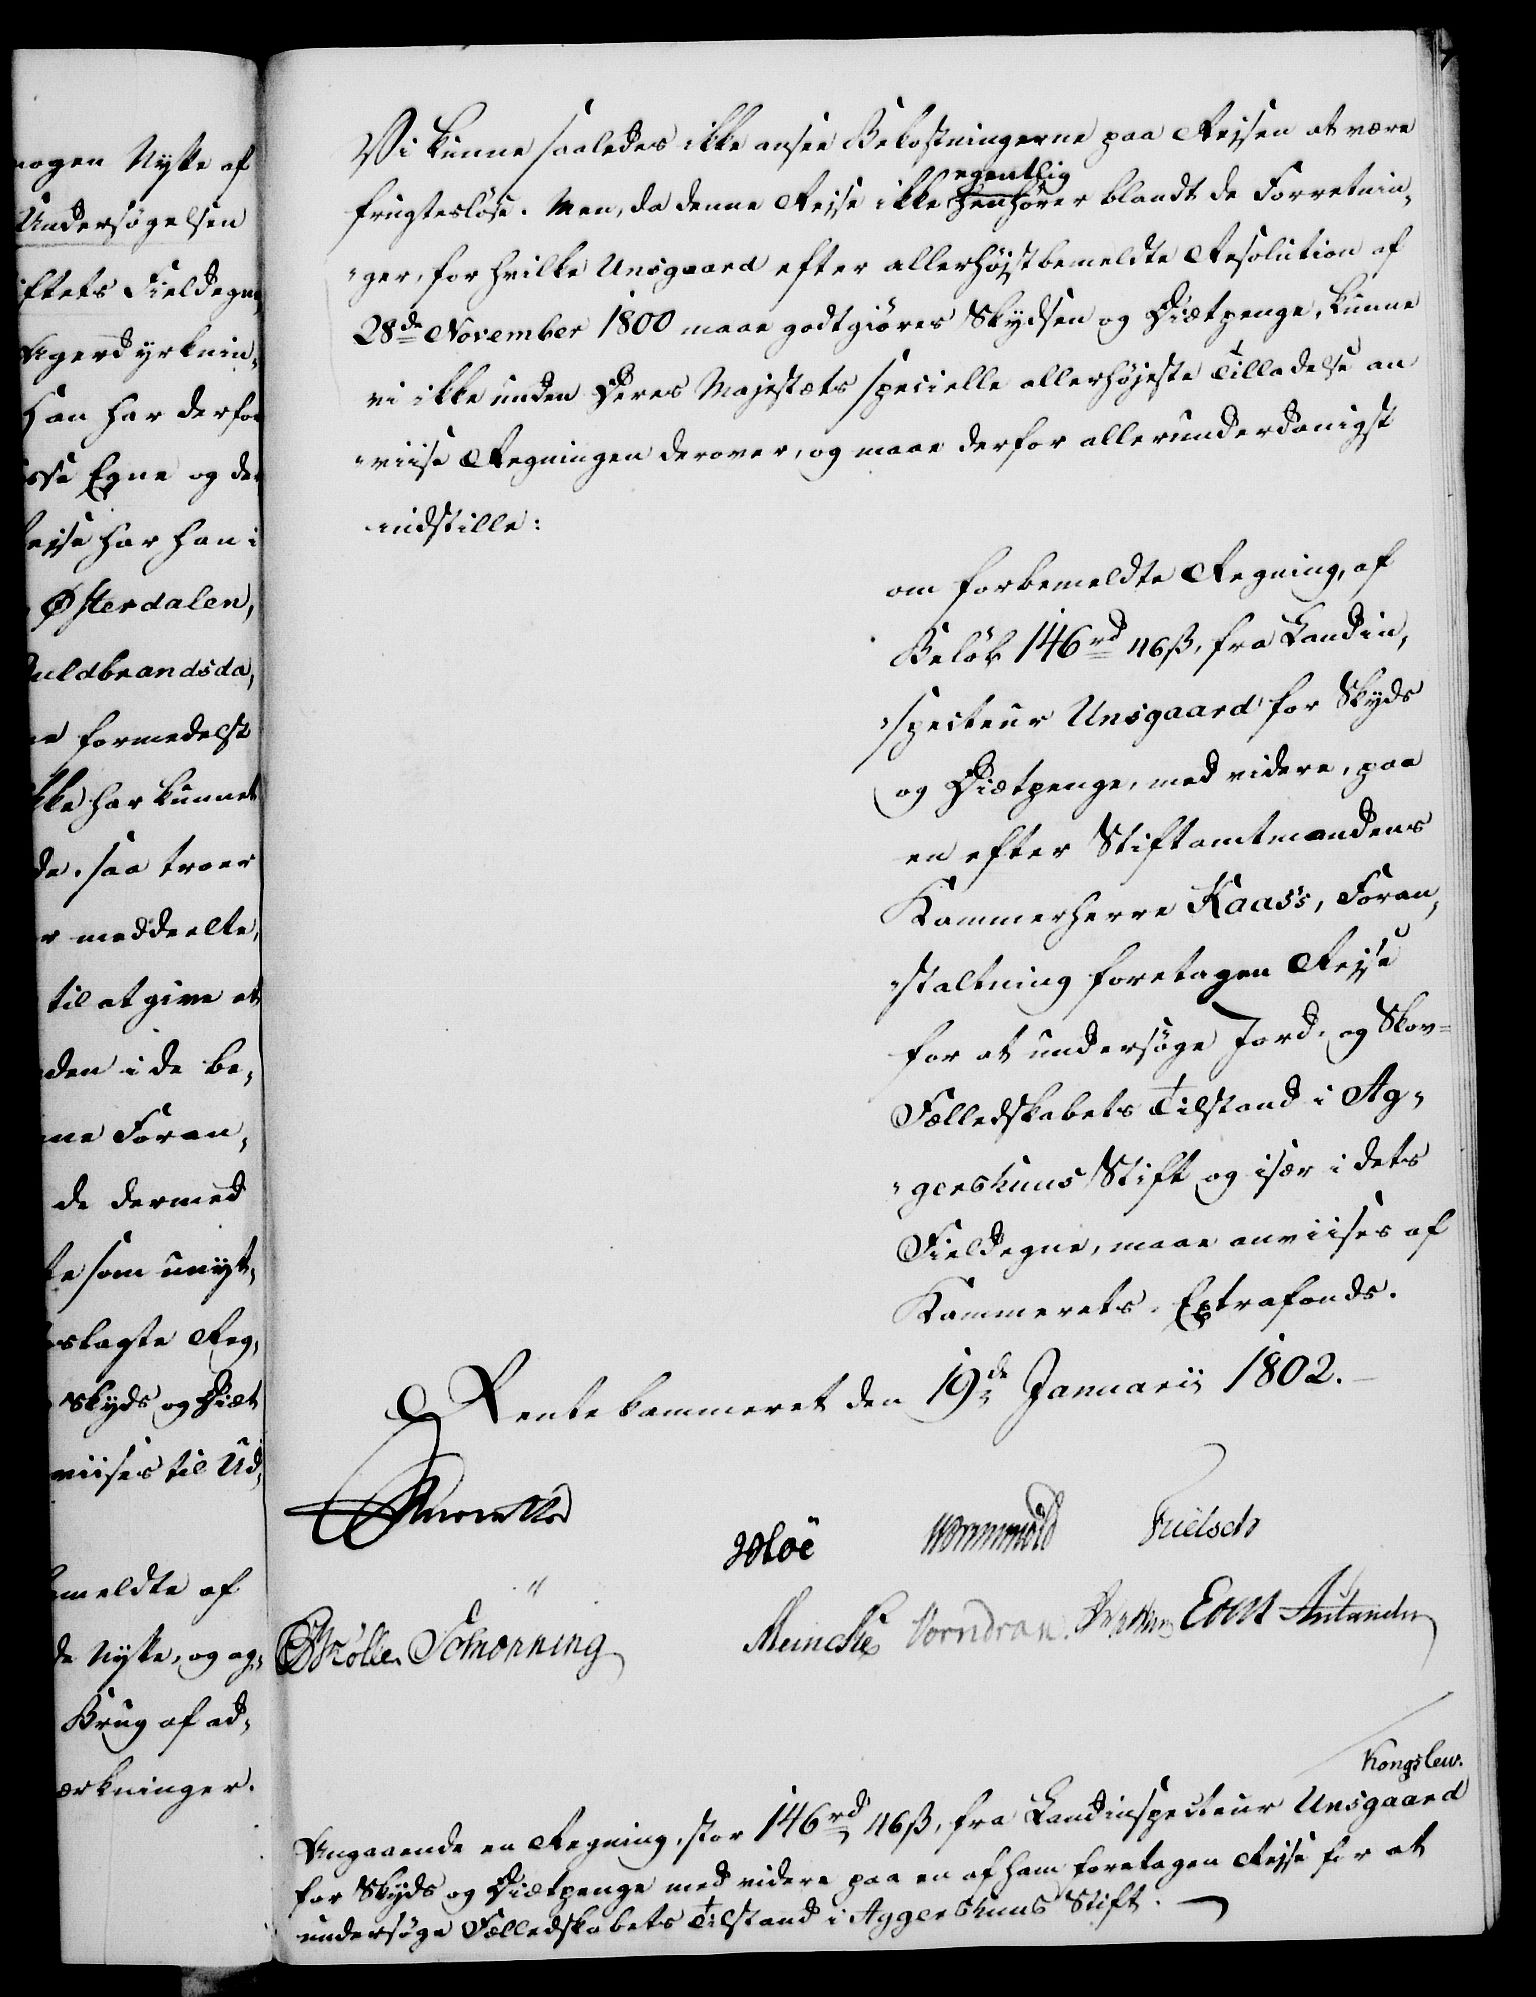 nogen Nytte af
Undersøgelsen
iftets Fieldegne,
Agerdyrknin„
Han har derfor
sse Egne og de
Rejse har han i
Østerdalen,
uldbrandsda„
ne formedelst
ikke har kunnet
de, saa troer
r meddeelte,
til at give et
den i de be„
ne Foran„
de dermed
te som unyt„
slagte Reg„
Skyds og Diæt
viises til Ud„
meldte af
de Nytte, og og„
Brug af ad„
ærkninger.
Vi kunne saaledes ikke ansee Bekostningerne paa Reisen at være
egentlig
frugtesløse. Men, da denne Reise ikke henhører blandt de Forretnin„
„ger, for hvilke Unsgaard efter allerhøjstbemeldte Resolution af
28de November 1800 maae godtgiøres Skydsen og Diætpenge, kunne
vi ikke uden Deres Majestæts specielle allerhøjeste Tilladelse an
„viise Regningen derover, og maae derfor allerunderdanigst
indstille:
om forbemeldte Regning, af
Beløb 146rd 46ß, fra Landin„
„specteur Unsgaard for Skyds
og Diætpenge, med videre, paa
en efter Stiftamtmandens
Kammerherre Kaas's, Foran„
„staltning foretagen Reise
for at undersøge Jord- og Skov=
Fælledskabets Tilstand i Ag„
„gershuus Stift og især i dets
Fieldegne, maae anviises af
Kammerets Extrafonds.
Rentekammeret den 19de Januarii 1802.
Reventlow
Wormskiold
Frieisch
Schønning
Meincke Vorndran
Kongslew.
Angaaende en Regning, stor 146rd 46ß, fra Landinspecteur Unsgaard
for Skyds og Diætpenge med videre paa en af ham foretagen Reise for at
undersøge Fælledskabets Tilstand i Aggershuus Stift.